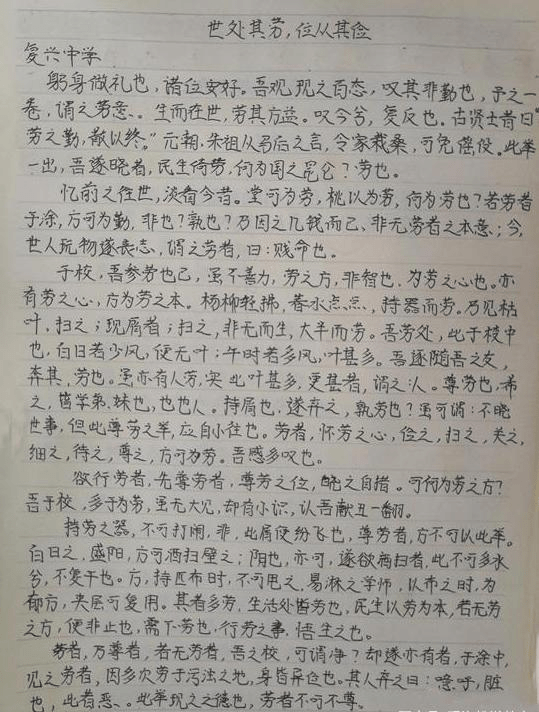 世处其劳，位从其俭
复兴中学
躬身做礼也，诸位安好。吾观现之百态，叹其非勤也，予之一
卷，谓之劳意。生而在世，劳其方益。叹今兮，复反也。古贤士昔曰“
劳之勤，献以终。”元朝，朱祖从马后之言，令家栽桑，可免徭役。此举
一出，吾遂晓者，民生倚劳，何为国之昆仑？劳也。
忆前之往世，淡看今昔。堂可为劳，桃以为劳，何为劳也？若劳者
于涂，方可为勤，非也？孰也？乃因之几钱而已、非无劳者之本意；今，
世人玩物遂丧志，谓之劳者，曰：贱命也。
于校，吾参劳也已，虽不善力，劳之方，非智也。为劳之心也。亦
有劳之心，方为劳之本。杨柳轻拂，春水点点，持器而劳。乃见枯
叶，扫之；现屑者；扫之，非无而生，大半而劳。吾劳处，此于校中
也，白日若少风，便无叶；午时若多风，叶甚多。吾遂随吾之友，
弃其，劳也。虽亦有人劳，实此叶甚多，更甚者，谓之：人。尊劳也，希
之，皆学弟、妹也，也也人。持屑也，遂弃之，孰劳也？虽可谓：不晓
世事，但此尊劳之举，应自小往也。劳者，怀劳之心，俭之，扫之，关之，
细之，待之，尊之，方可为劳。吾感多叹也。
欲行劳者，先尊劳者，尊劳之位，之自措。可何为劳之方？
吾于校，多于为劳，虽无大见，却有小识，认吾献丑一翻。
持劳之器，不可打闹，非，此屑便纷飞也，尊劳者，方不可以此举。
白日之，盛阳，方可洒扫壁之；阴也，亦可，遂欲洒扫者，此不可多水
兮，不复干也。方，持匹布时，不可甩之，易淋之学师，以布之时，为
郁方，夹层可复用。其者多劳，生活处皆劳也，民生以劳为本，若无劳
之方，便非止也，需下劳也，行劳之事，悟生之也。
劳者，万尊者，若无劳者，吾之校，可谓净？却遂亦有者，于涂中，
见之劳者，因多次劳于污浊之地，身皆异位也。其人弃之曰：噫吁，脏
也，此者恶、。此举现之之德也，劳者不可不尊。